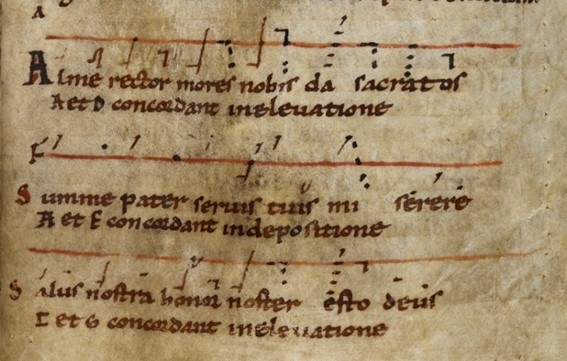 A
Alme rector mores nobis da sacratos
A et D concordant in elevatione
F
Summe pater servis tuis miserere
A et E concordant in depositione
Salus nostra honor noster esto deus
C et G concordant in elevatione